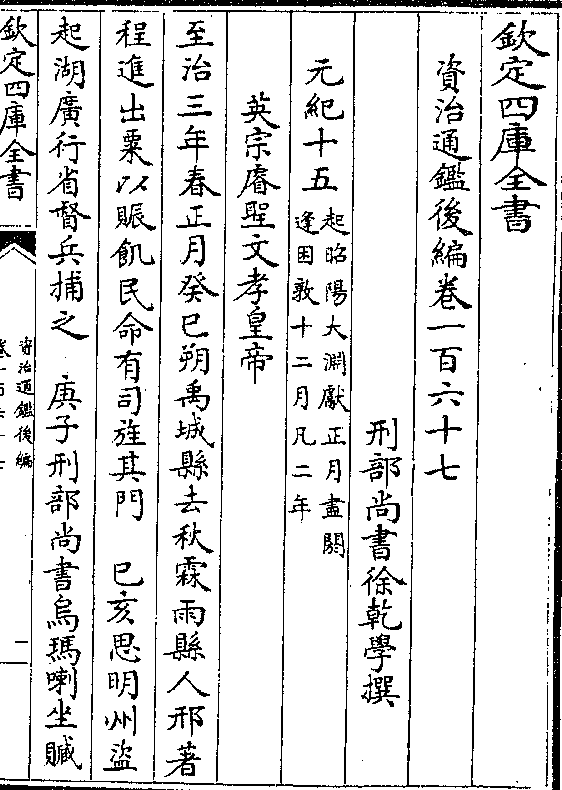 欽定四庫全書
資治通鑑後編卷一百六十七
刑部尚書徐乾學撰
元紀十五 起昭陽大淵獻正月盡閼
逢困敦十二月凡二年
英宗睿聖文孝皇帝
至治三年春正月癸巳朔禹城縣去秋霖雨縣人邢著
程進出粟以賑飢民命有司旌其門 己亥思明州盜
起湖廣行省督兵捕之 庚子刑部尚書烏瑪喇坐贓
欽定四庫全書
資治通鑑後編
一